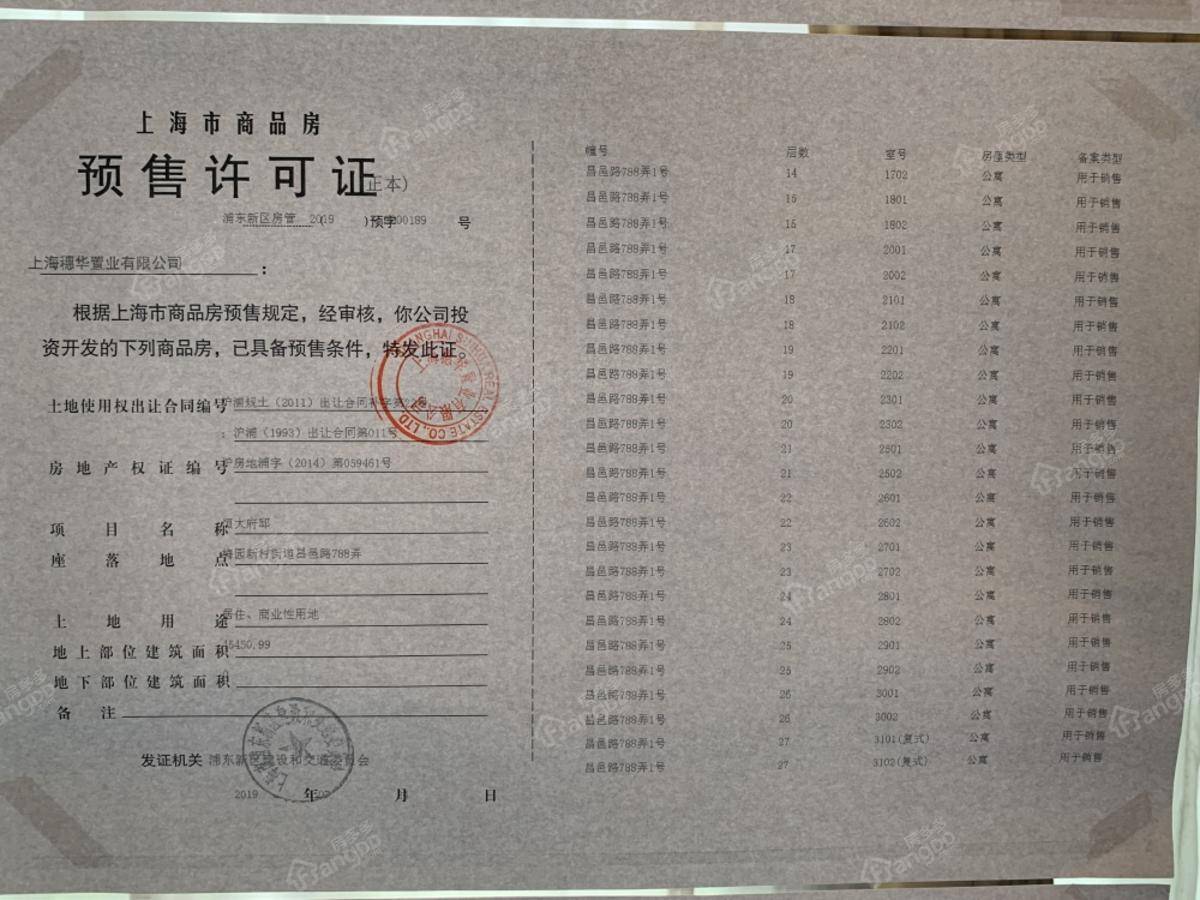 上海市商品房
预售许可证(正本)
浦东新区房管 2019 )预字00189 号
上海穗华置业有限公司 :
根据上海市商品房预售规定，经审核，你公司投
资开发的下列商品房，已具备预售条件，特发此证。
土地使用权出让合同编号 沪浦规土（2011）出让合同补字第
: 沪浦（1993）出让合同第011号
房地产权证编号 沪房地浦字（2014）第059461号
项目名称 恒大府邸
座落地点 梅园新村街道昌邑路788弄
土地用途 居住、商业性用地
地上部位建筑面积 15450.99
地下部位建筑面积
备注
发证机关 浦东新区建设和交通委员会
2019 年 月 日
幢号 层数 室号 房屋类型 备案类型
昌邑路788弄1号 14 1702 公寓 用于销售
昌邑路788弄1号 15 1801 公寓 用于销售
昌邑路788弄1号 15 1802 公寓 用于销售
昌邑路788弄1号 17 2001 公寓 用于销售
昌邑路788弄1号 17 2002 公寓 用于销售
昌邑路788弄1号 18 2101 公寓 用于销售
昌邑路788弄1号 18 2102 公寓 用于销售
昌邑路788弄1号 19 2201 公寓 用于销售
昌邑路788弄1号 19 2202 公寓 用于销售
昌邑路788弄1号 20 2301 公寓 用于销售
昌邑路788弄1号 20 2302 公寓 用于销售
昌邑路788弄1号 21 2501 公寓 用于销售
昌邑路788弄1号 21 2502 公寓 用于销售
昌邑路788弄1号 22 2601 公寓 用于销售
昌邑路788弄1号 22 2602 公寓 用于销售
昌邑路788弄1号 23 2701 公寓 用于销售
昌邑路788弄1号 23 2702 公寓 用于销售
昌邑路788弄1号 24 2801 公寓 用于销售
昌邑路788弄1号 24 2802 公寓 用于销售
昌邑路788弄1号 25 2901 公寓 用于销售
昌邑路788弄1号 25 2902 公寓 用于销售
昌邑路788弄1号 26 3001 公寓 用于销售
昌邑路788弄1号 26 3002 公寓 用于销售
昌邑路788弄1号 27 3101(复式) 公寓 用于销售
昌邑路788弄1号 27 3102(复式) 公寓 用于销售